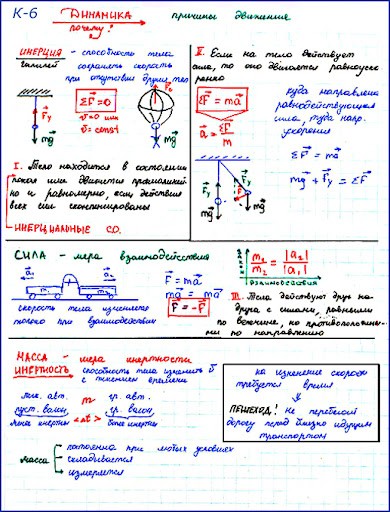 К-6 ДИНАМИКА причины движения
почему?
ИНЕРЦИЯ - способность тела
сохранять скорость
при отсутствии других тел
Fу
mg
ΣF=0
v=0 или
v=const
mg
I. Тело находится в состоянии
покоя или движется прямолиней-
но и равномерно, если действия
всех сил скомпенсированы
ИНЕРЦИАЛЬНЫЕ С.О.
II. Если на тело действует
сила, то оно движется равноуско-
ренно
ΣF = ma
a = ΣF/m
куда направлена
равнодействующая
сила, туда напр.
ускорение
Fу
Fу
mg
mg
ΣF = ma
mg + Fу = ΣF
СИЛА - мера взаимодействия
m
m
скорость тела изменяется
только при взаимодействии
F = ma
ma = ma
F = -F
m₁/m₂ = |a₂|/|a₁|
взаимодействия
III. Тела действуют друг на
друга с силами, равными
по величине, но противоположны-
ми по направлению
МАССА - мера инертности
ИНЕРТНОСТЬ - способность тела изменять v
с течением времени
лег. авт. m гр. авт.
пуст. вагон, гр. вагон,
менее инертны <Δt> более инертны
масса
постоянна при любых условиях
складывается
измеряется
на изменение скорости
требуется время
ПЕШЕХОД! Не перебегай
дорогу перед близко идущим
транспортом